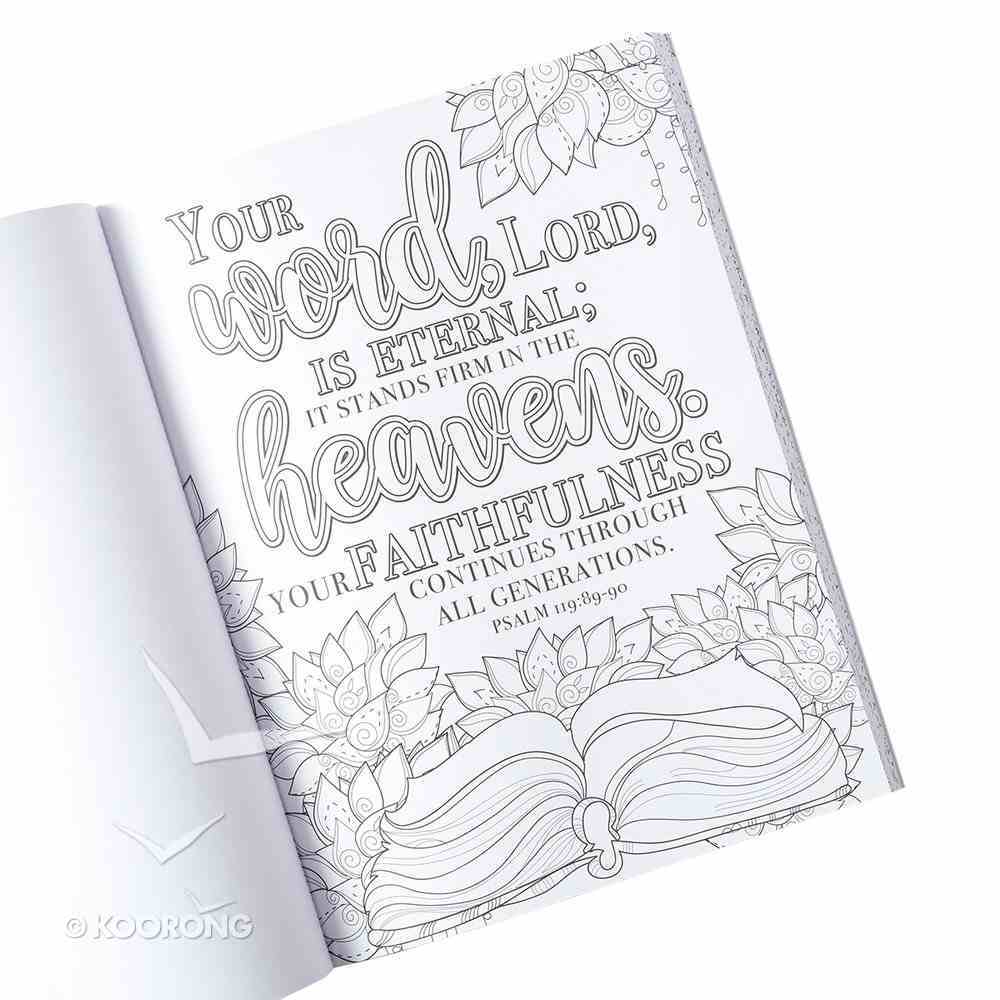 YOUR
word, LORD,
IS ETERNAL;
IT STANDS FIRM IN THE
heavens.
YOUR FAITHFULNESS
CONTINUES THROUGH
ALL GENERATIONS.
PSALM 119:89-90
© KOORONG